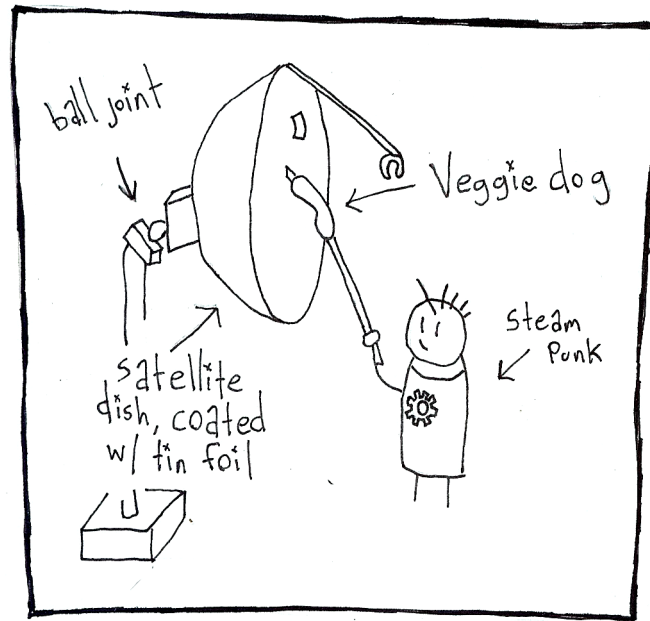 ball joint
Veggie dog
steam
Punk
satellite
dish, coated
w/ tin foil